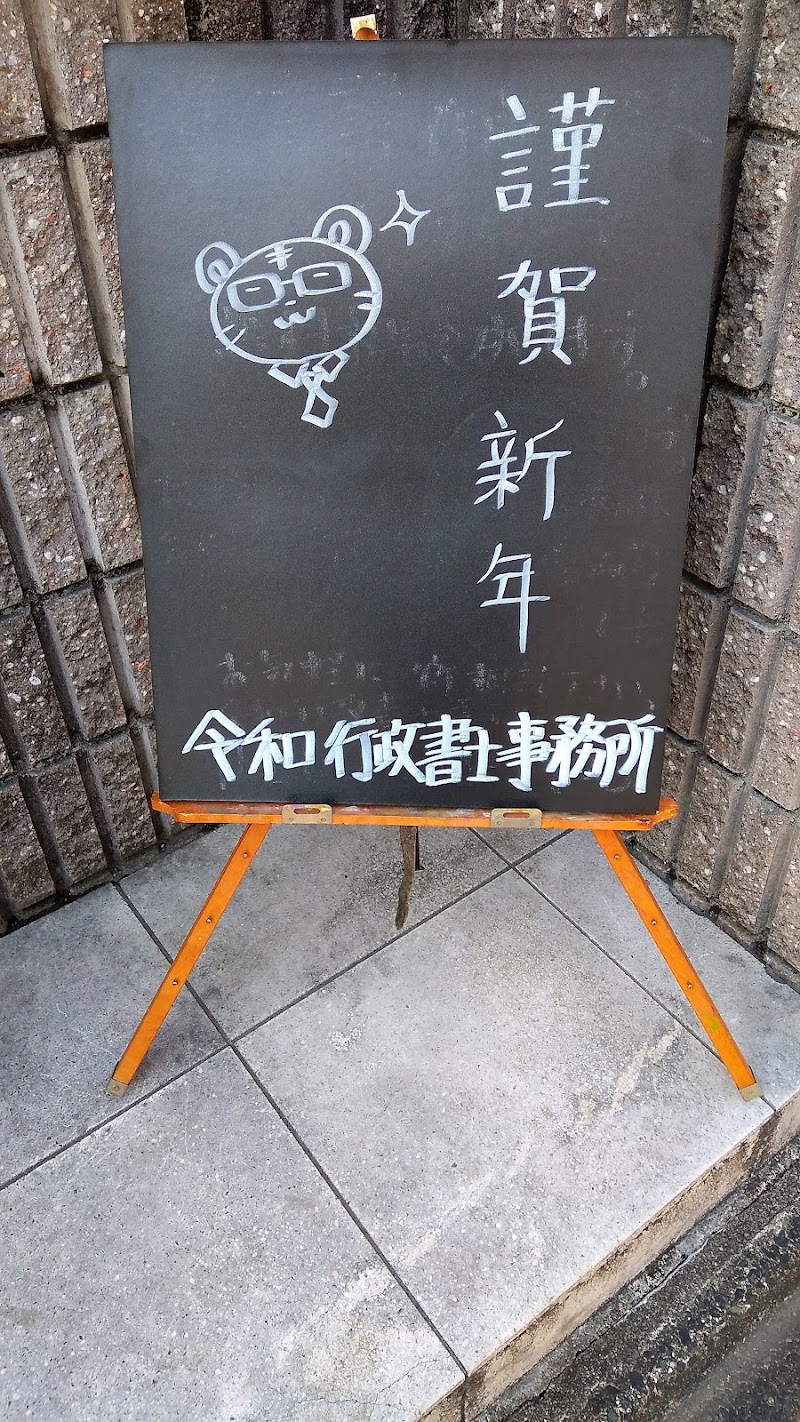 謹賀新年
令和行政書士事務所